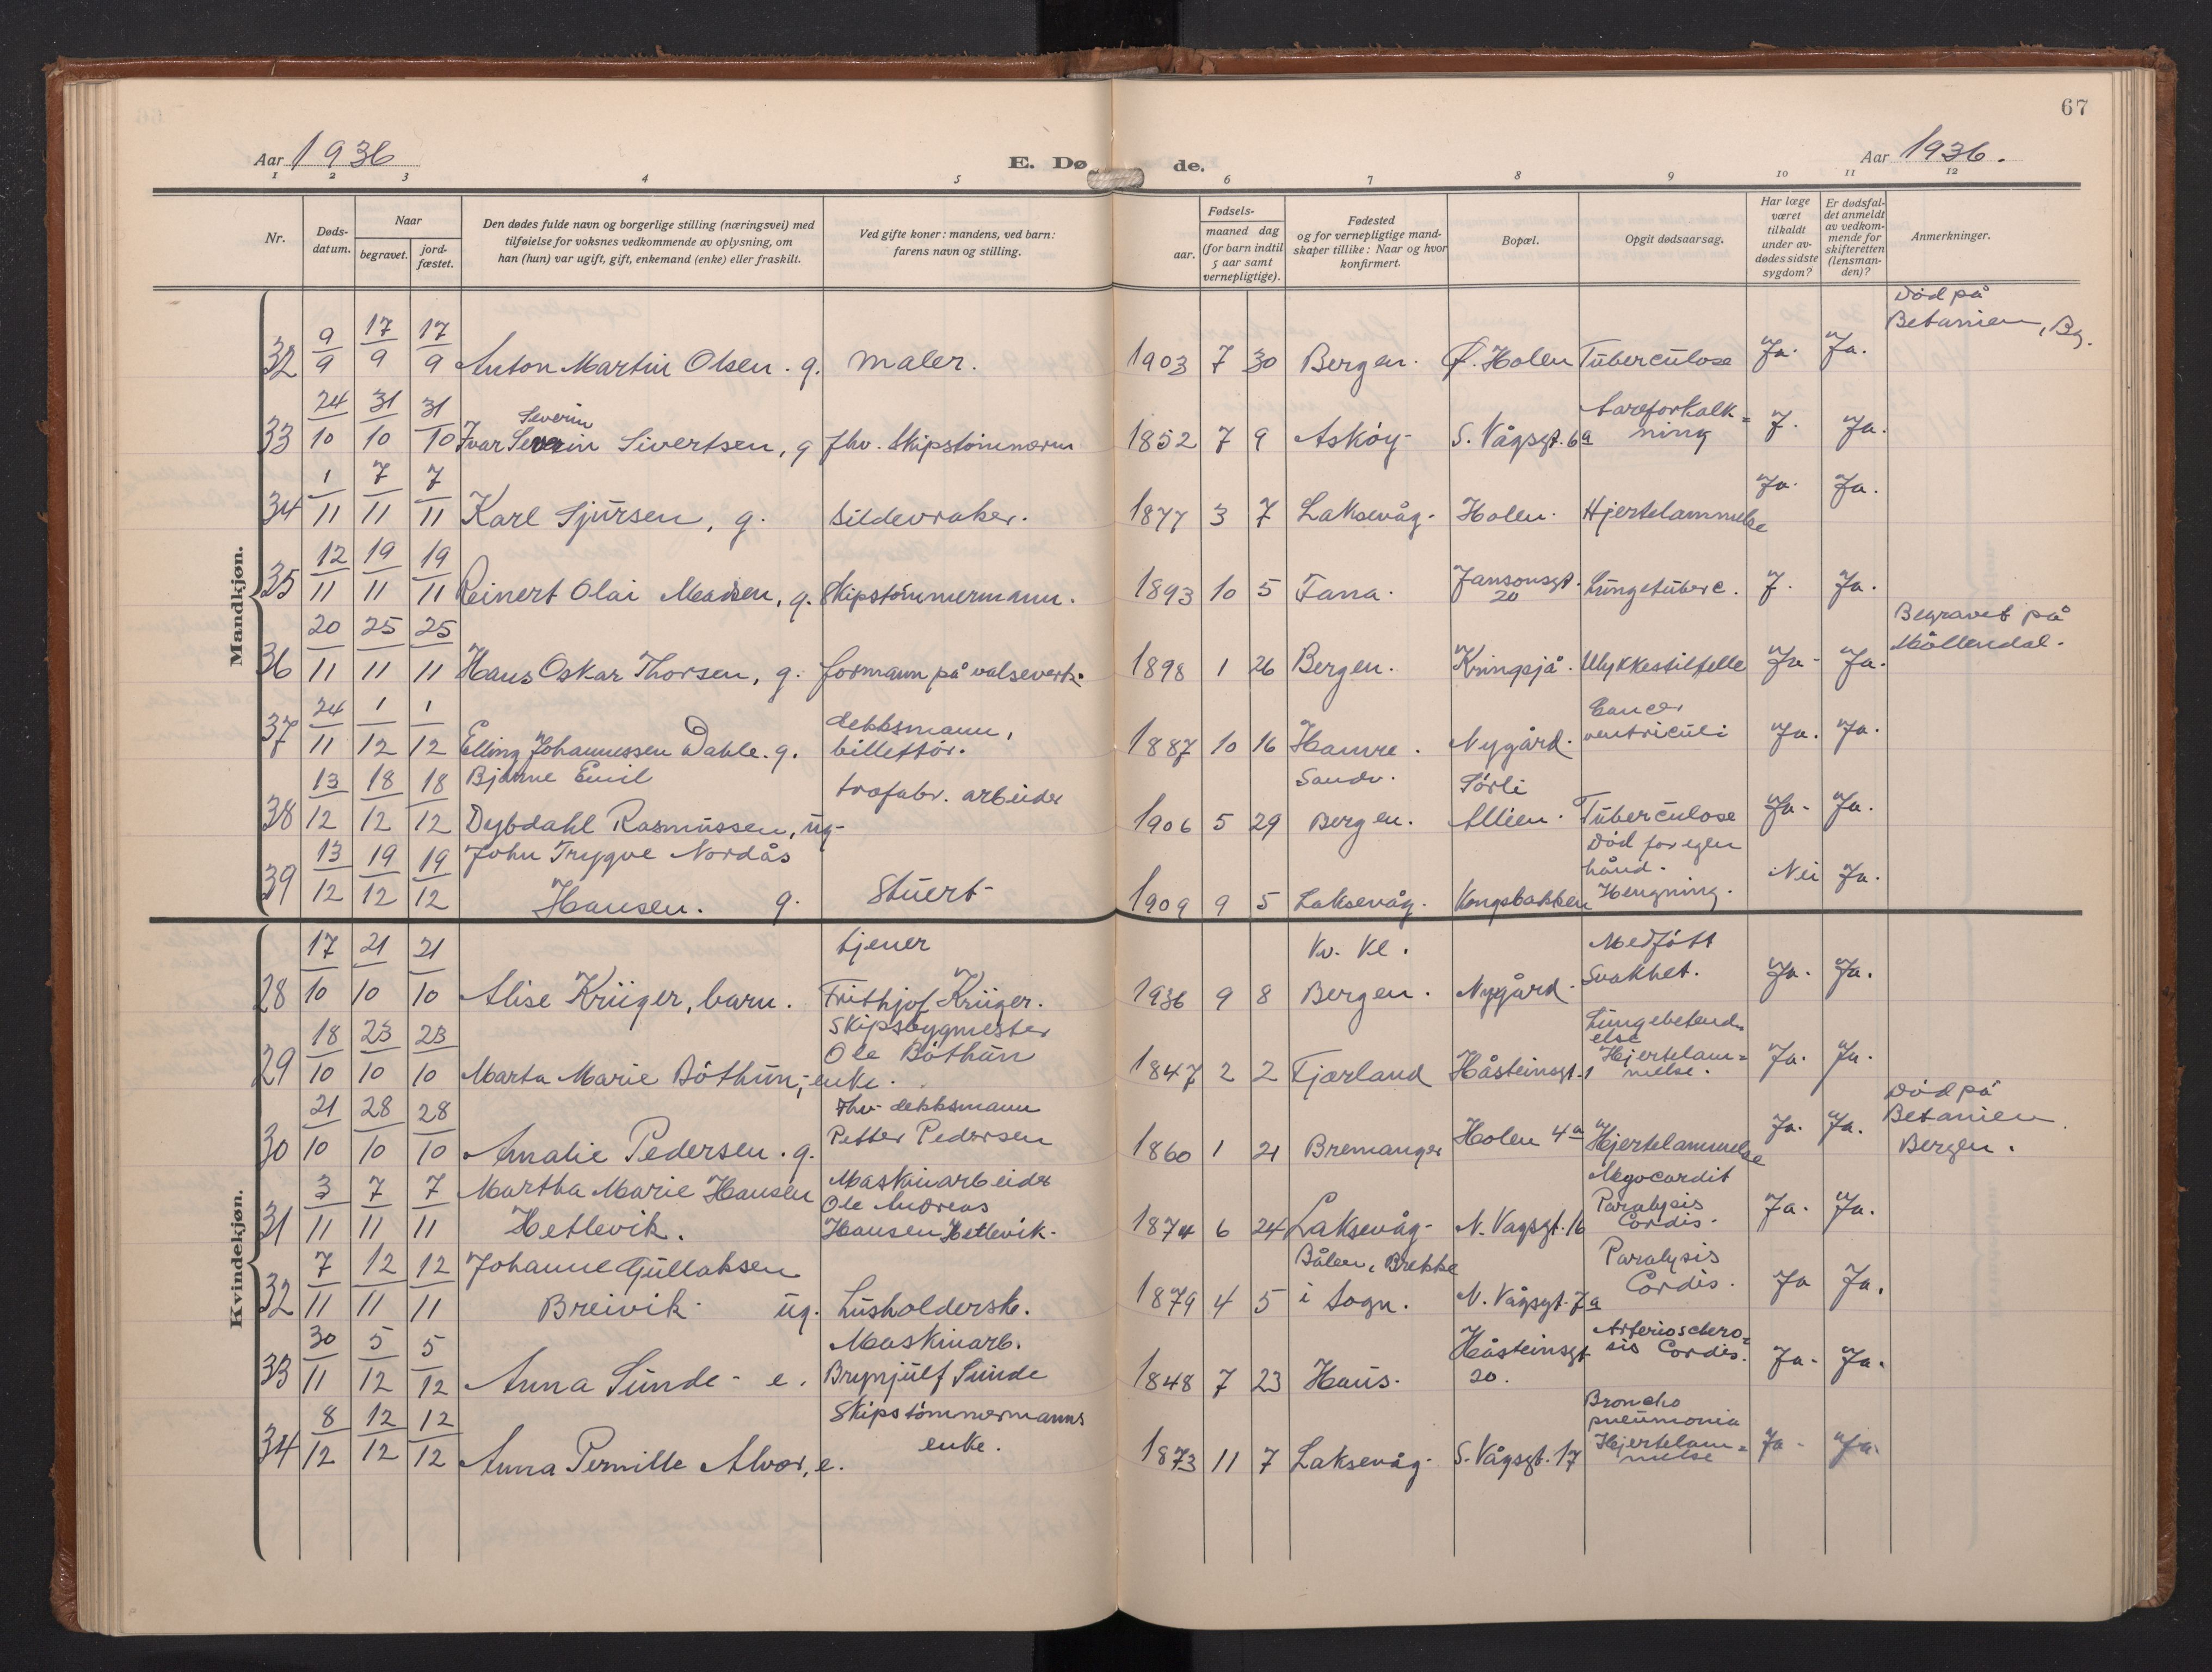 67
Aar 1936
E. Dø de.
Aar 1936.
1 2 3 4 5 6 7 8 9 10 11 12
Nr.
Døds-datum.
Naar
begravet.
jord-fæstet.
Den dødes fulde navn og borgerlige stilling (næringsvei) med
tilføielse for voksnes vedkommende av oplysning, om
han (hun) var ugift, gift, enkemand (enke) eller fraskilt.
Ved gifte koner: mandens, ved barn:
farens navn og stilling.
Fødsels-
aar.
maaned dag
(for barn indtil
5 aar samt
vernepligtige).
Fødested
og for vernepligtige mand-
skaper tillike: Naar og hvor
konfirmert.
Bopæl.
Opgit dødsaarsag.
Har læge
været
tilkaldt
under av-
dødes sidste
sygdom?
Er dødsfal-
det anmeldt
av vedkom-
mende for
skifteretten
(lensman-
den)?
Anmerkninger.
Mandkjøn.
32 9/9 17/9 17/9 Anton Martin Olsen. g. maler. 1903 7 30 Bergen. Ø. Holen Tuberculose Ja. Ja. Død på Betanien, Bg.
33 24/10 31/10 31/10 Ivar Severin Severin Sivertsen, g fhv. Skipstömmerm 1852 7 9 Asköy S. Vågsgt. 6a Aareforkalk= ning J. Ja.
34 1/11 7/11 7/11 Karl Sjursen, g. Sildevraker. 1877 3 7 Laksevåg. Holen. Hjertelammelse Ja. Ja.
35 12/11 19/11 19/11 Reinert Olai Madsen, g. Skipstömmermann. 1893 10 5 Fana. Jansonsgt. 20 Lungetuberc. J. Ja.
36 20/11 25/11 25/11 Hans Oskar Thorsen, g. formann på valseverk. 1898 1 26 Bergen. Kringsjå. Ulykkestilfelle Ja. Ja. Begravet på Möllendal.
37 24/11 1/12 1/12 Elling Johannessen Dahle. g. dekksmann, billettör. 1887 10 16 Hamre. Nygård. Cancer ventriculi Ja. Ja.
38 13/12 18/12 18/12 Bjarne Emil Dybdahl Rasmussen, ug. trafabr. arbeider 1906 5 29 Sandv. Bergen. Sörli Alléen. Tuberculose Ja. Ja.
39 13/12 19/12 19/12 John Trygve Nordås Hansen. g. Stuert 1909 9 5 Laksevåg. Kongsbakken Död for egen hånd. Hengning. Nei Ja.
Kvindekjøn.
28 17/10 21/10 21/10 Alise Krüger, barn. tjener Frithjof Krüger. 1936 9 8 Kv. Kl. Bergen. Nygård. Medfött Svakhet. Ja. Ja.
29 18/10 23/10 23/10 Marta Marie Böthun, enke. Skipsbygmester Ole Böthun 1847 2 2 Fjærland Håsteinsgt. 1 Lungebetend= else Hjertelam= melse. Ja. Ja.
30 21/10 28/10 28/10 Amalie Pedersen. g. Fhv. dekksmann Petter Pedersen 1860 1 21 Bremanger Holen 4a Hjertelammelse Ja. Ja. Död på Betanien Bergen.
31 3/11 7/11 7/11 Martha Marie Hansen Hetlevik. Maskinarbeider Ole Andreas Hansen Hetlevik. 1874 6 24 Laksevåg N. Vagsgt. 16 Myocardit Paralysis Cordis. Ja. Ja.
32 7/11 12/11 12/11 Johanne Gullaksen Breivik ug. Lusholdersk. 1879 4 5 Bålen, Brekke i Sogn. N. Vågsgt. 7a Paralysis Cordis. Ja Ja.
33 30/11 5/12 5/12 Anna Sunde e. Maskinarb. Brynjulf Sunde 1848 7 23 Haus. Håsteinsgt 20. Arterioschero= sis Cordis. Ja. Ja.
34 8/12 12/12 12/12 Anna Pernille Alvær, e. Skipstömmermanns enke. 1873 11 7 Laksevåg. S. Vågsgt. 17 Broncho pneumonia Hjertelam= melse Ja. Ja.